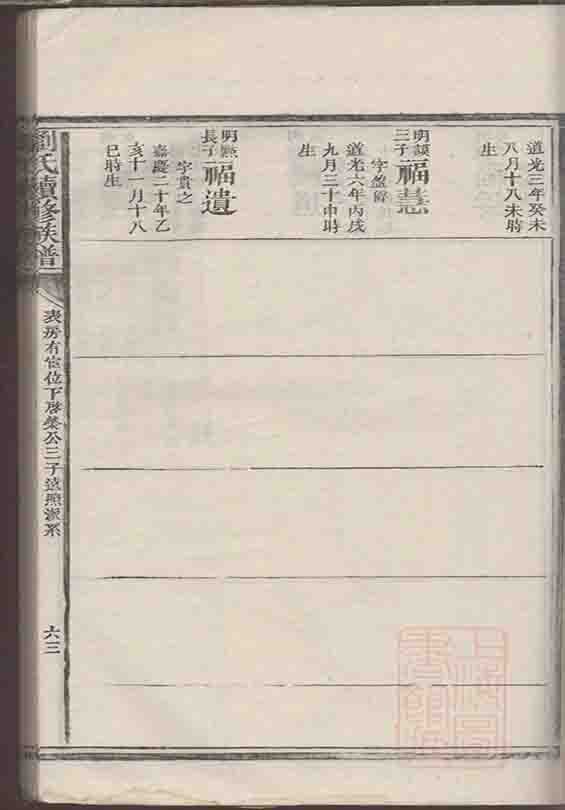 道光三年癸未
八月十八未時
生
明謨
三子
福慧
字盈
道光六年丙戌
九月三十申時
生
明點
長子
福遺
字貴之
嘉慶二十年乙
亥十一月十八
巳時生
劉氏續修族譜
表房有宦位下啓榮公三子遠照派系
六三
上海圖書館